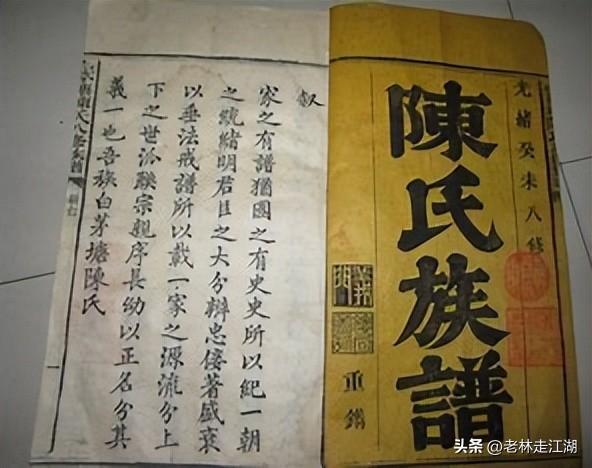 光緒癸未八修
陳氏族譜
重鐫
叙
家之有譜猶國之有史史所以紀一朝
之統緒明君臣之大分辨忠佞著盛衰
以垂法戒譜所以載一家之源流分上
下之世派聯宗親序長幼以正名分其
義一也吾族白茅塘陳氏
头条 @老林走江湖